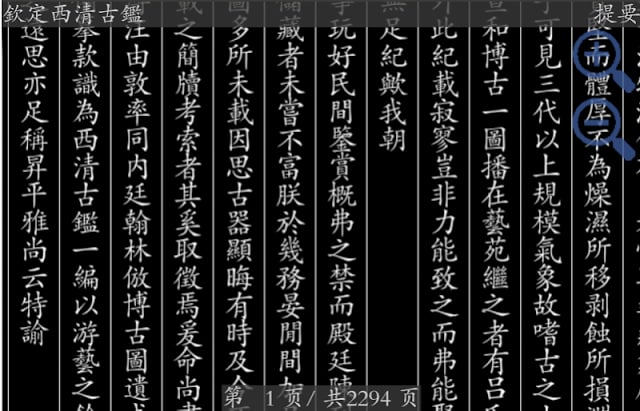 欽定西清古鑑
提要
而體厚不為燥濕所移剥蝕所損
可見三代以上規模氣象故嗜古之
宣和博古一圖播在藝苑繼之者有吕
此紀載寂寥豈非力能致之而弗能
足紀歟我朝
玩好民間鑒賞概弗之禁而殿廷陳
儲藏者未嘗不富朕於幾務晏閒間
圖多所未載因思古器顯晦有時及
之簡牘考索者其奚取徵焉爰命尚
由敦率同内廷翰林倣博古圖遺
款識為西清古鑑一編以游藝之
遠思亦足稱昇平雅尚云特諭
第 1 页/ 共2294 页